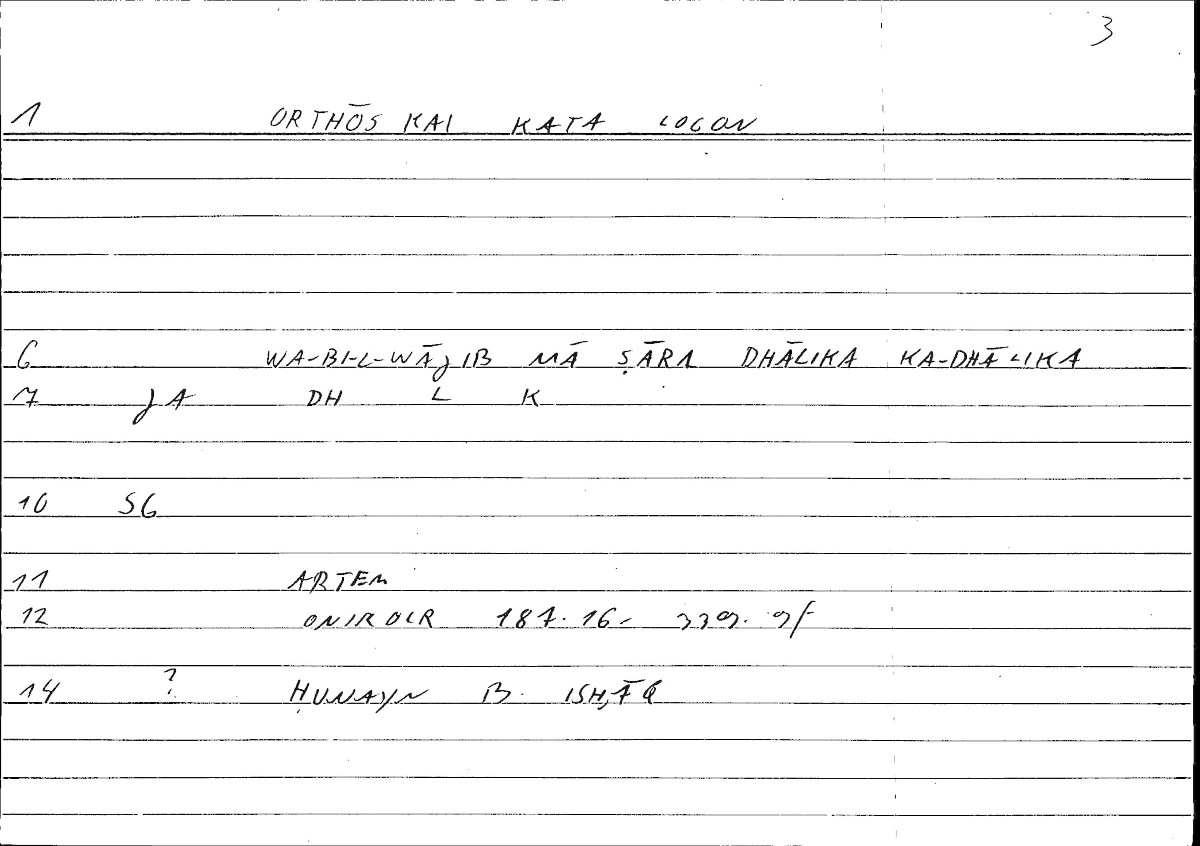 3
1 ORTHŌS KAI KATA LOGON
6 WA-BI-L-WĀJIB MĀ ṢĀRA DHĀLIKA KA-DHĀLIKA
7 JA DH L K
10 SG
11 ARTEM
12 ONIROCR 187.16- 339.9f
14 ? ḤUNAYN B. ISḤĀQ